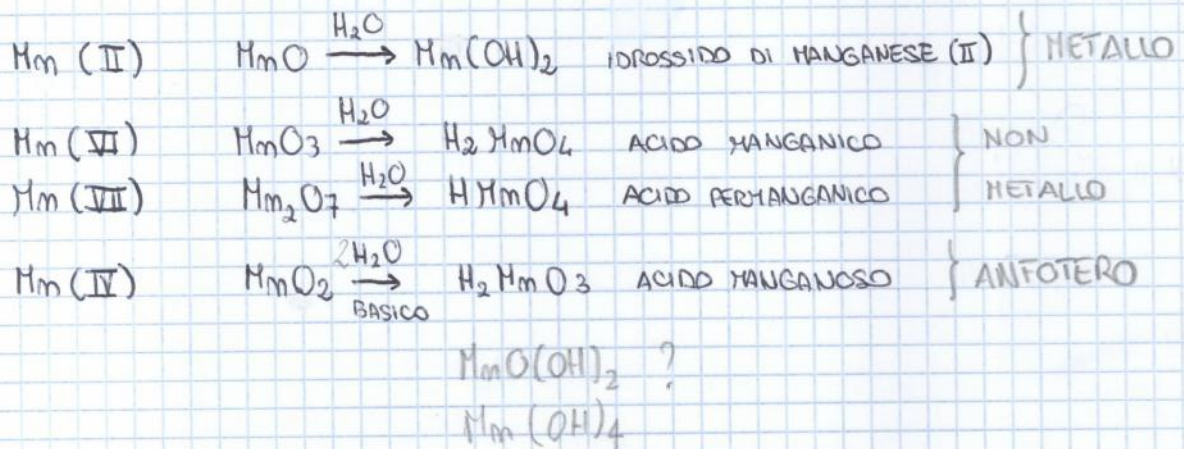 Mn (II) MnO H₂O → Mn(OH)₂ IDROSSIDO DI MANGANESE (II) } METALLO
Mn (VI) MnO₃ H₂O → H₂MnO₄ ACIDO MANGANICO } NON
Mn (VII) Mn₂O₇ H₂O → HMnO₄ ACIDO PERMANGANICO METALLO
Mn (IV) MnO₂ 2H₂O → BASICO H₂MnO₃ ACIDO MANGANOSO } ANFOTERO
MnO(OH)₂ ?
Mn(OH)₄